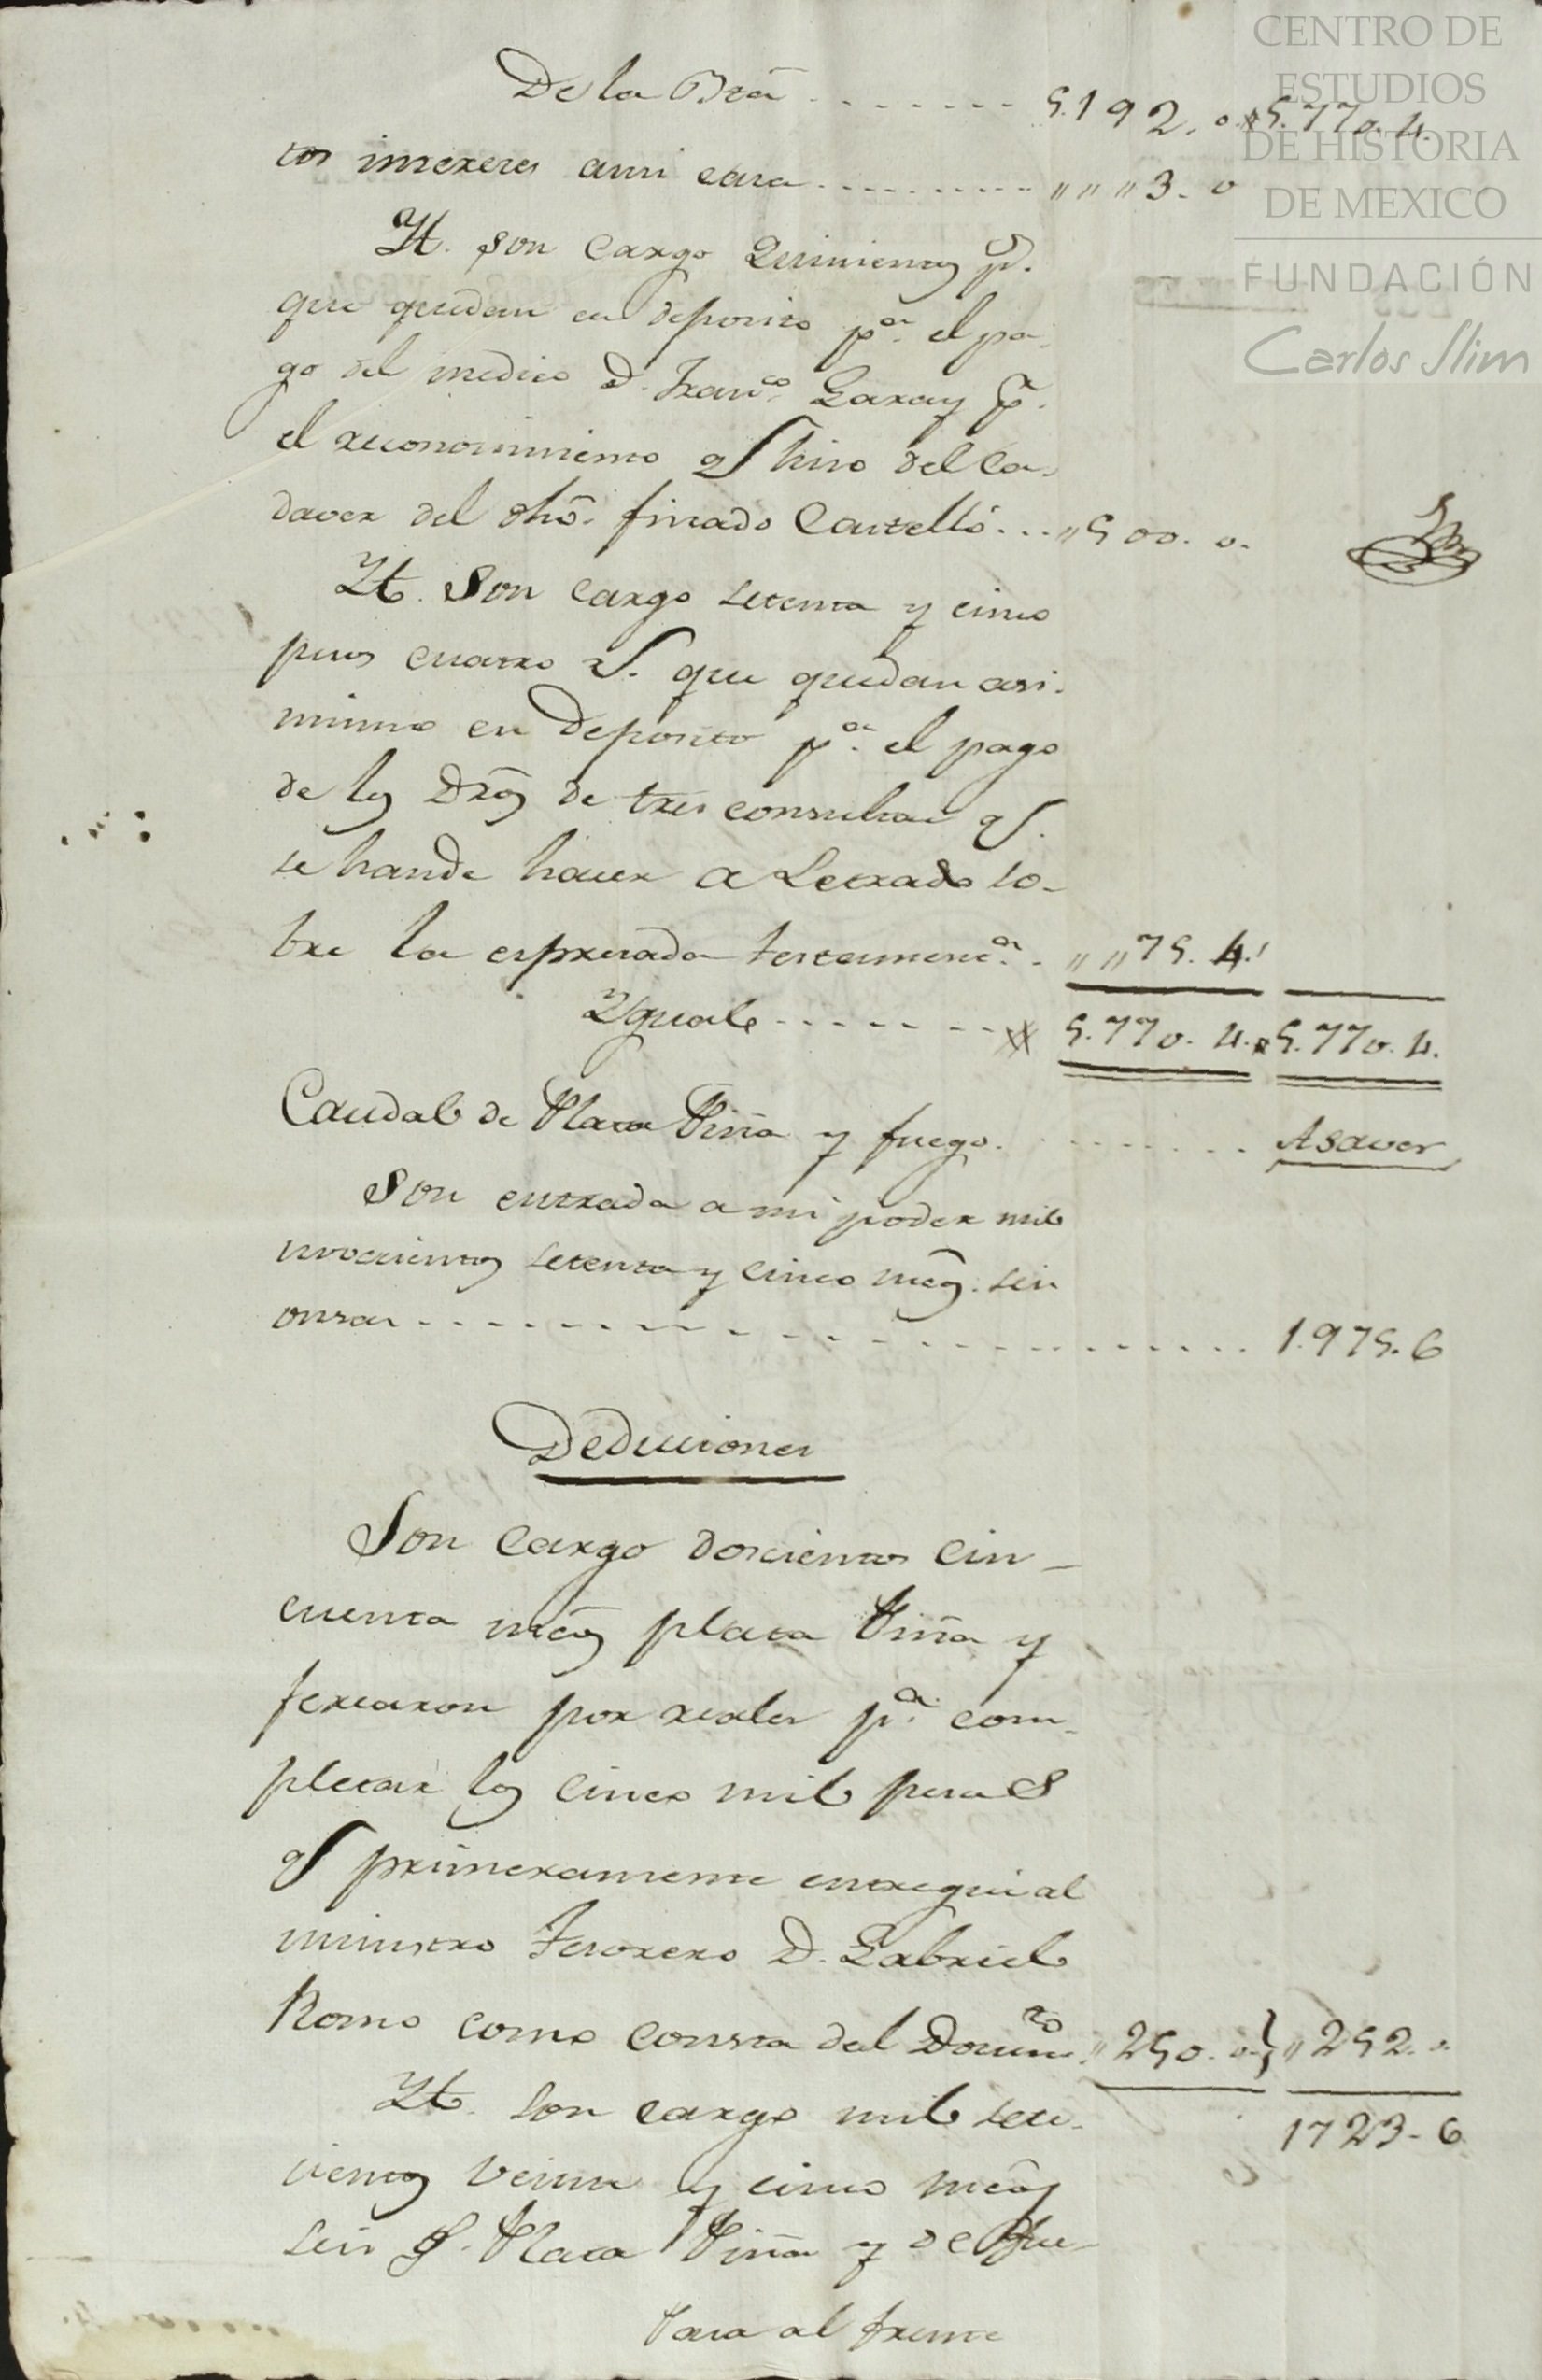 De la Bta ........ 5.192. o. 5.770. 4.
tos intereses a mi casa ......... " " " 3. o
Yt. son cargo Quinientos p.s
que quedan en deposito p.a el pa-
go del medico D. Fran.co Garay p.r
el reconocimiento q.e hiso del Ca-
daver del dho. finado Castelló... " 500. o.
Yt. Son cargo setenta y cinco
pesos cuatro r.s que quedan asi-
mismo en deposito p.a el pago
de los Dros de tres consultas q.e
se han de hacer a Letrado so-
bre la espresada testament.a - " " 75. 4.
Yguale - - - - - - - 5.770. 4. 5.770. 4.
Caudal de Plata Piña y fuego. ....... Asaver
Son entrada a mi poder mil
novecientos setenta y cinco mcos. seis
onsas - - - - - - - - - - - - 1.975. 6
Deduciones
Son cargo doscientos cin-
cuenta mcos plata Piña y
feriaron por reales p.a com-
pletar los cinco mil pesos
q.e primeramente entregué al
ministro Tesorero D. Gabriel
Romo como consta del Docum.to " 250. o. } " 252. o.
1723 - 6
Yt. Son cargo mil sete-
cientos veinte y cinco mcos
seis Plata Piña y de fue-
Pasa al frente
CENTRO DE
ESTUDIOS
DE HISTORIA
DE MEXICO
FUNDACIÓN
Carlos Slim